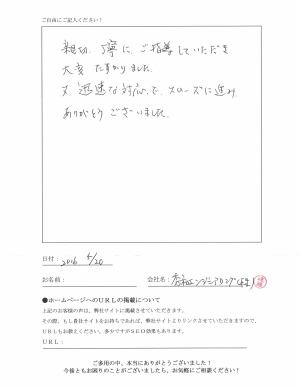 ご自由にご記入ください！
親切、丁寧に、ご指導していただき
大変 たすかりました。
又、迅速な対応で、スムーズに進み
ありがとう ございました。
日付： 2016 4/20
お名前：
会社名：
●ホームページへのＵＲＬの掲載について
上記のお客様の声は、弊社サイトに掲載させていただきます。
その際、もし貴社サイトをお持ちであれば、弊社サイトよりリンクさせていただきますので、
ＵＲＬもお教えください。多少ですがＳＥＯ効果もあります。
ＵＲＬ：
ご多用の中、本当にありがとうございました！
今後ともお困りのことがございましたら、お気軽にご相談ください！